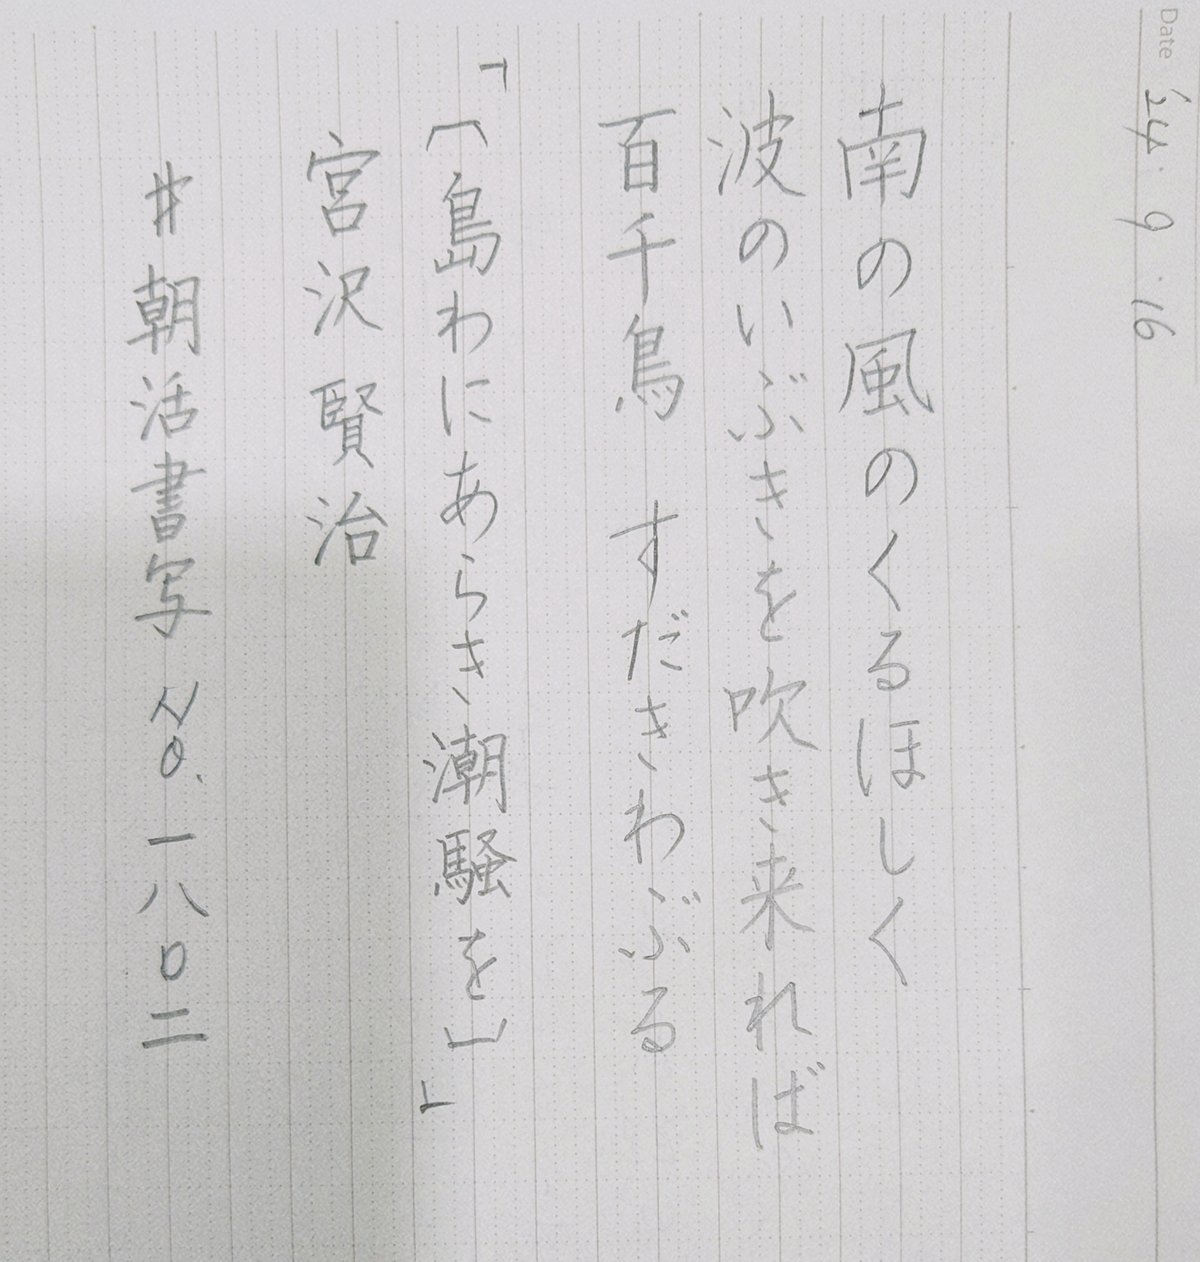 Date '24.9.16
南の風のくるほしく
波のいぶきを吹き来れば
百千鳥 すだきわぶる
「〔島わにあらき潮騒を〕」
宮沢賢治
#朝活書写 No.一八〇二